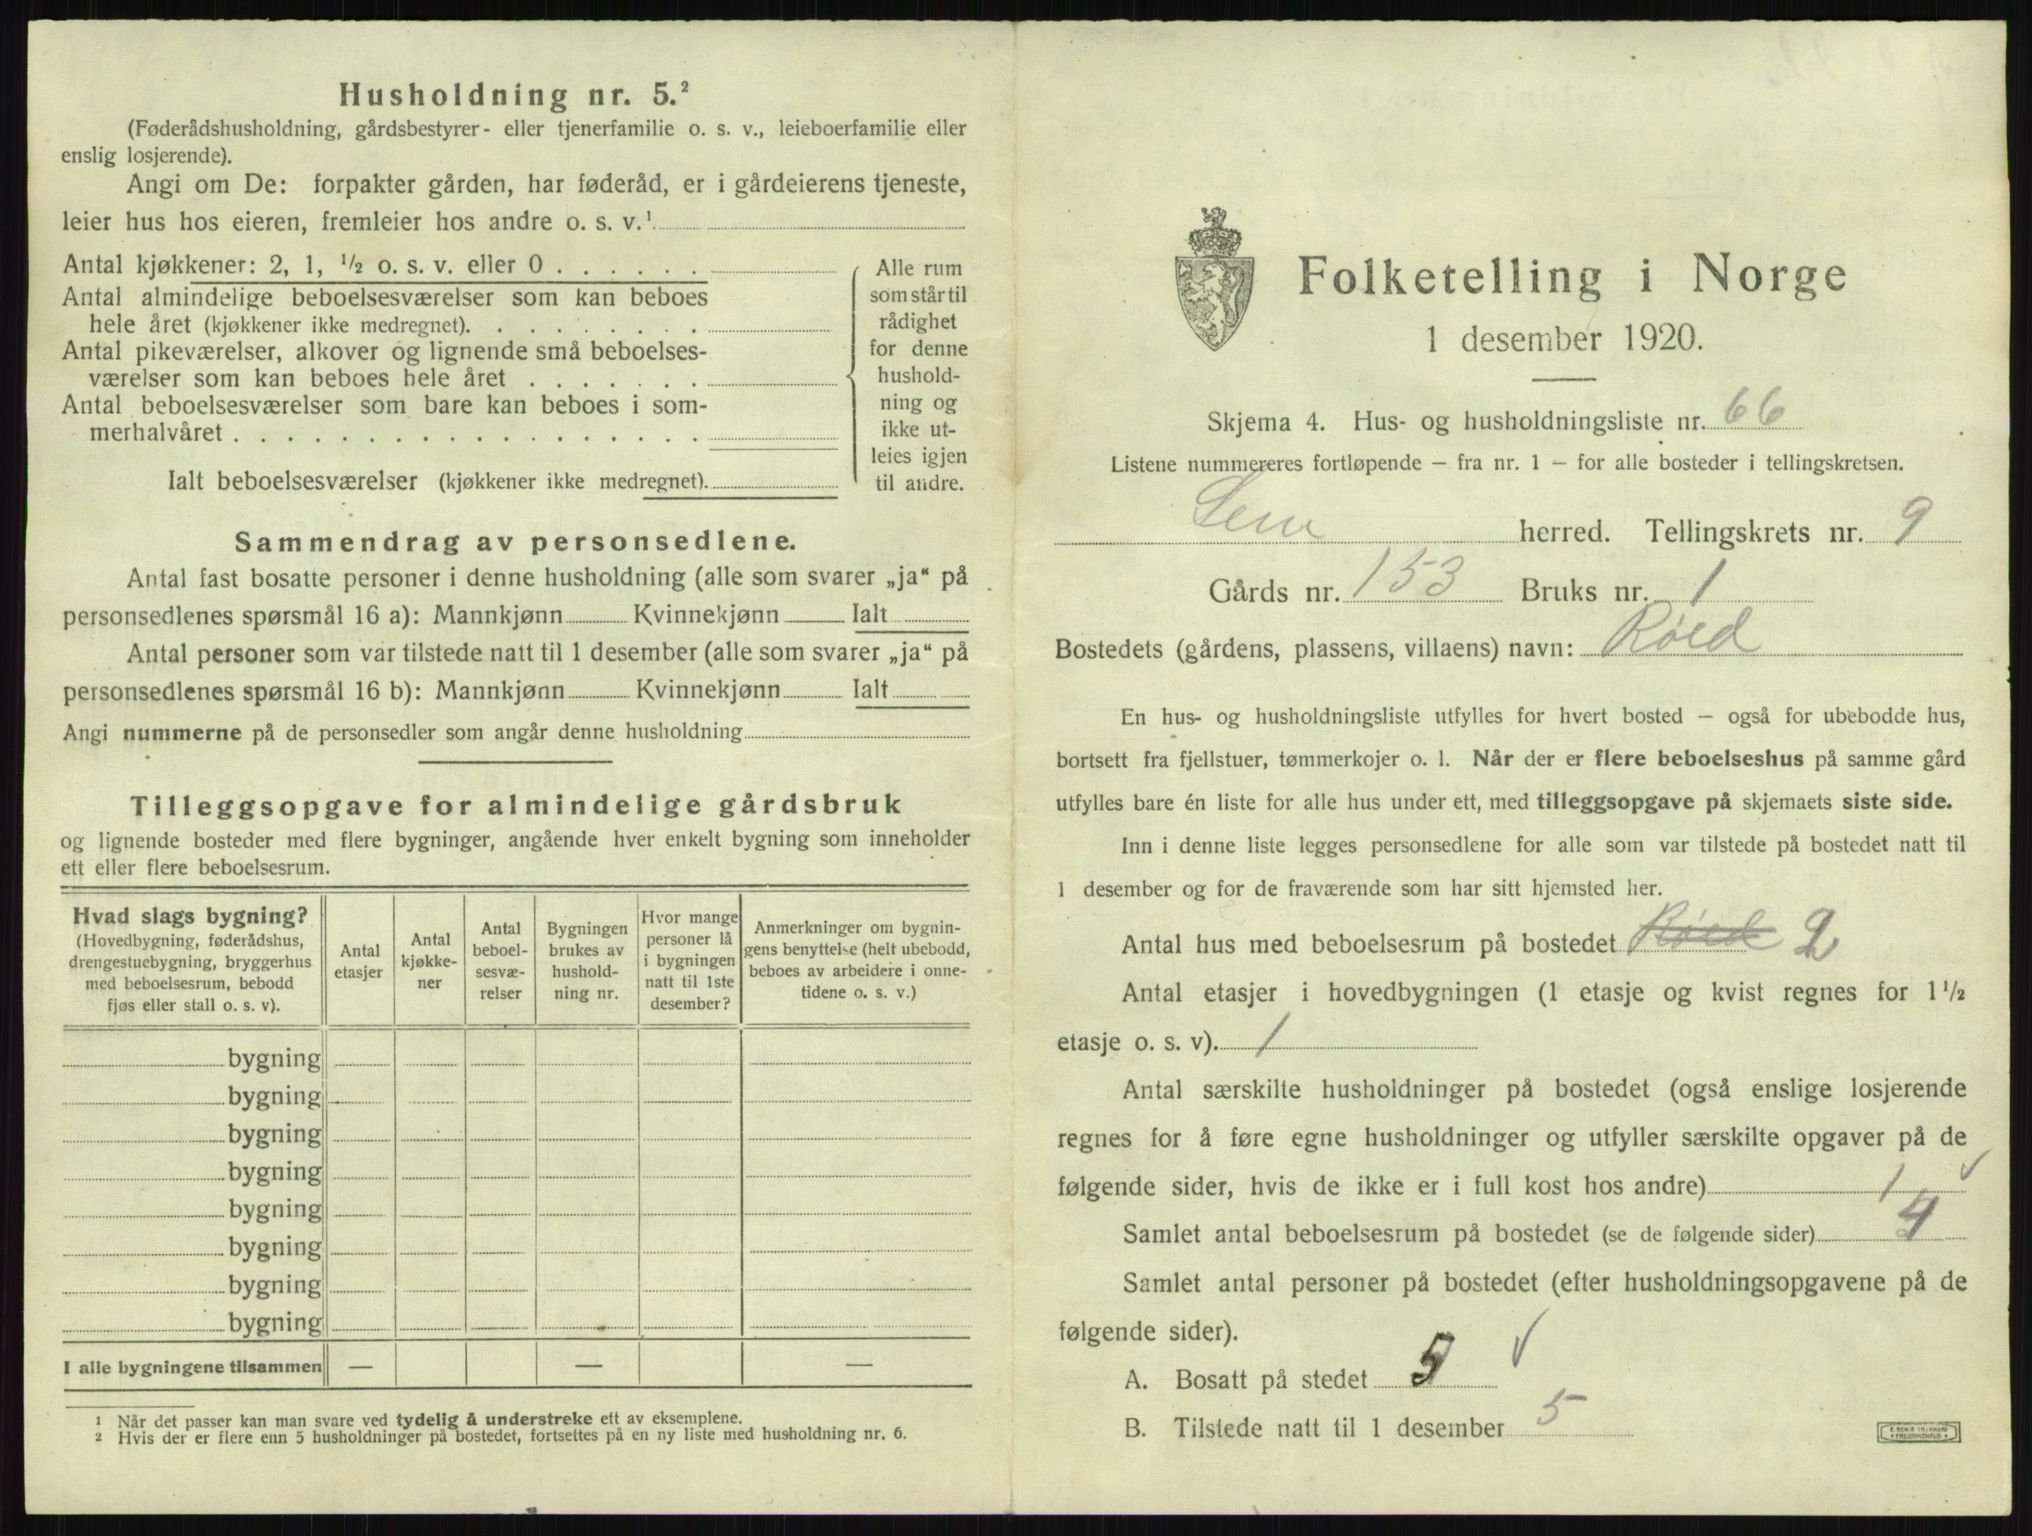 Husholdning nr. 5.²
(Føderådshusholdning, gårdsbestyrer- eller tjenerfamilie o. s. v., leieboerfamilie eller
enslig losjerende).
Angi om De: forpakter gården, har føderåd, er i gårdeierens tjeneste,
leier hus hos eieren, fremleier hos andre o. s. v.¹
Antal kjøkkener: 2, 1, ½ o. s. v. eller 0 . . . . . .
Antal almindelige beboelsesværelser som kan beboes
hele året (kjøkkener ikke medregnet). . . . . . . . .
Antal pikeværelser, alkover og lignende små beboelses-
værelser som kan beboes hele året . . . . . . .
Antal beboelsesværelser som bare kan beboes i som-
merhalvåret . . . . . . . . . . . . . . . . . .
Ialt beboelsesværelser (kjøkkener ikke medregnet).
Alle rum
som står til
rådighet
for denne
hushold-
ning og
ikke ut-
leies igjen
til andre.
Sammendrag av personsedlene.
Antal fast bosatte personer i denne husholdning (alle som svarer „ja“ på
personsedlenes spørsmål 16 a): Mannkjønn Kvinnekjønn Ialt
Antal personer som var tilstede natt til 1 desember (alle som svarer „ja“ på
personsedlenes spørsmål 16 b): Mannkjønn Kvinnekjønn Ialt
Angi nummerne på de personsedler som angår denne husholdning
Tilleggsopgave for almindelige gårdsbruk
og lignende bosteder med flere bygninger, angående hver enkelt bygning som inneholder
ett eller flere beboelsesrum.
Hvad slags bygning?
(Hovedbygning, føderådshus,
drengestuebygning, bryggerhus
med beboelsesrum, bebodd
fjøs eller stall o. s. v).
Antal
etasjer
Antal
kjøkke-
ner
Antal
beboel-
sesvæ-
relser
Bygningen
brukes av
hushold-
ning nr.
Hvor mange
personer lå
i bygningen
natt til 1ste
desember?
Anmerkninger om bygnin-
gens benyttelse (helt ubebodd,
beboes av arbeidere i onne-
tidene o. s. v.)
bygning
bygning
bygning
bygning
bygning
bygning
bygning
bygning
I alle bygningene tilsammen — — —
¹ Når det passer kan man svare ved tydelig å understreke ett av eksemplene.
² Hvis der er flere enn 5 husholdninger på bostedet, fortsettes på en ny liste med husholdning nr. 6.
Folketelling i Norge
1 desember 1920.
Skjema 4. Hus- og husholdningsliste nr. 66
Listene nummereres fortløpende – fra nr. 1 – for alle bosteder i tellingskretsen.
Sem herred. Tellingskrets nr. 9
Gårds nr. 153 Bruks nr. 1
Bostedets (gårdens, plassens, villaens) navn: Røed
En hus- og husholdningsliste utfylles for hvert bosted – også for ubebodde hus,
bortsett fra fjellstuer, tømmerkojer o. l. Når der er flere beboelseshus på samme gård
utfylles bare én liste for alle hus under ett, med tilleggsopgave på skjemaets siste side.
Inn i denne liste legges personsedlene for alle som var tilstede på bostedet natt til
1 desember og for de fraværende som har sitt hjemsted her.
Antal hus med beboelsesrum på bostedet Røed 2
Antal etasjer i hovedbygningen (1 etasje og kvist regnes for 1½
etasje o. s. v). 1
Antal særskilte husholdninger på bostedet (også enslige losjerende
regnes for å føre egne husholdninger og utfyller særskilte opgaver på de
følgende sider, hvis de ikke er i full kost hos andre) 1 √
Samlet antal beboelsesrum på bostedet (se de følgende sider) 4
Samlet antal personer på bostedet (efter husholdningsopgavene på de
følgende sider).
A. Bosatt på stedet 5 √
B. Tilstede natt til 1 desember 5